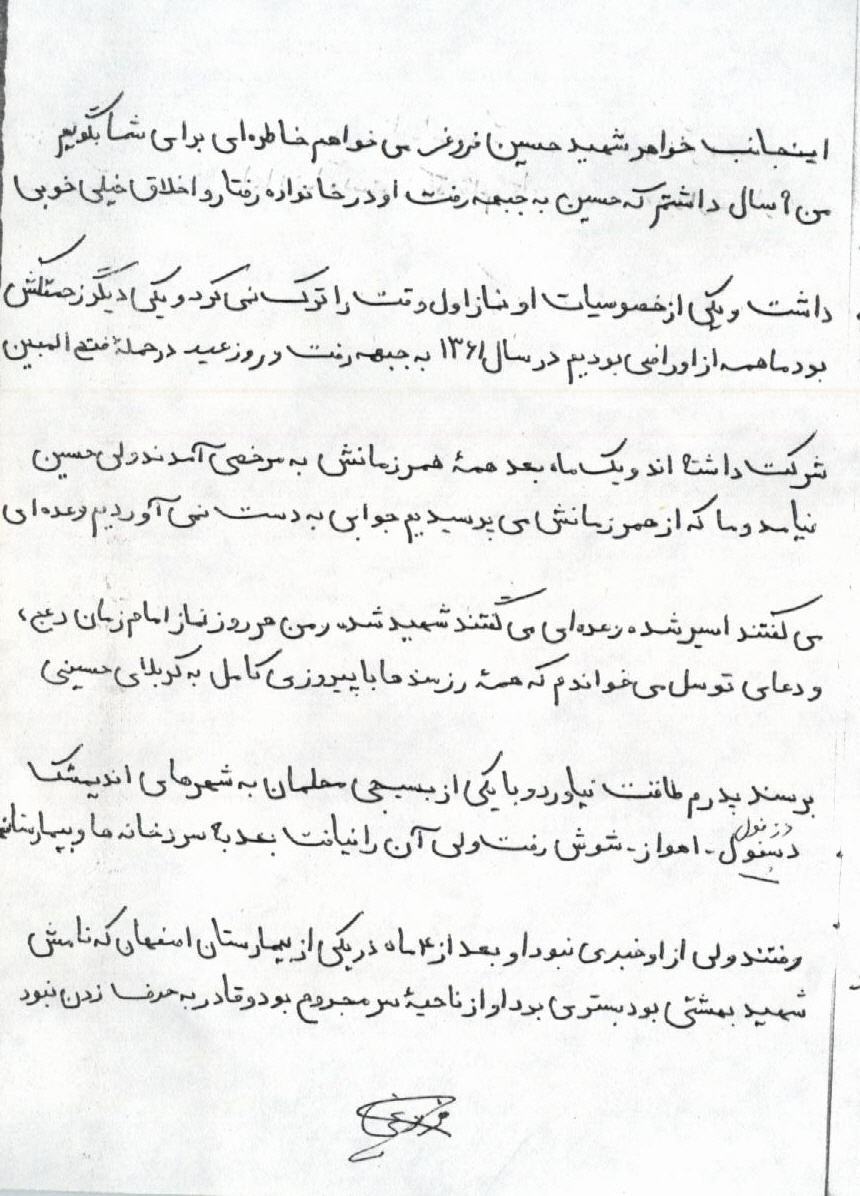 اینجانب خواهر شهید حسین فروغی می خواهم خاطره‌ای برای شما بگویم
من ۹ سال داشتم که حسین به جبهه رفت او در خانواده رفتار و اخلاق خیلی خوبی
داشت و یکی از خصوصیات او نماز اول وقت را ترک نمی کرد و یکی دیگر زحمتکش
بود ما همه از او راضی بودیم در سال ۱۳۶۱ به جبهه رفت و روز عید در حملهٔ فتح المبین
شرکت داشته اند و یک ماه بعد همهٔ همرزمانش به مرخصی آمدند ولی حسین
نیامد و ما که از همرزمانش می پرسیدیم جوابی به دست نمی آوردیم وعده‌ای
می گفتند اسیر شده وعده‌ای می گفتند شهید شده و من هر روز نماز امام زمان (عج)
و دعای توسل می خواندم که همهٔ رزمندها با پیروزی کامل به کربلای حسینی
برسند پدرم طاقت نیاورد و با یکی از بسیجی محلمان به شهرهای اندیمشک
دزفول
دسفول - اهواز - شوش رفت ولی آن را نیافت بعد به سردخانه ها و بیمارستانها
رفتند ولی از او خبری نبود او بعد از ۴ ماه در یکی از بیمارستان اصفهان که نامش
شهید بهشتی بود بستری بود او از ناحیهٔ سر مجروح بود و قادر به حرف زدن نبود
فروغی